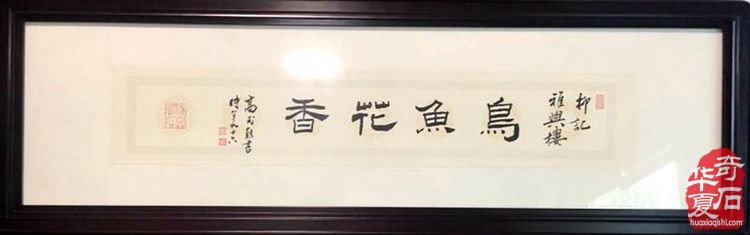 柳記
雅興樓
鳥魚花香
高式熊書
时年九十六
华夏奇石
huaxiaqishi.com